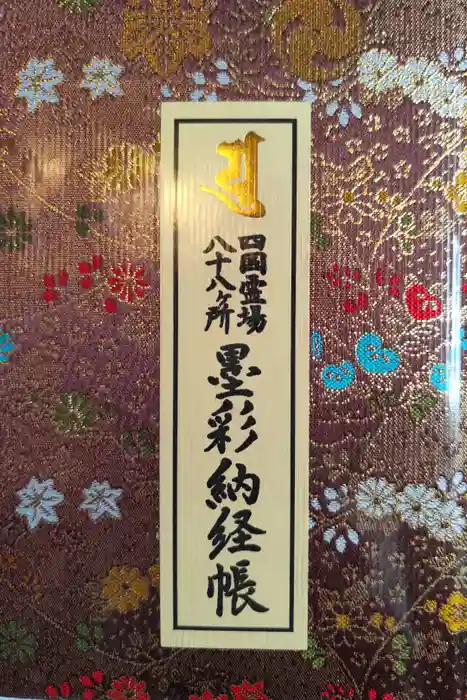 四国霊場
八十八ヶ所
墨彩納経帳